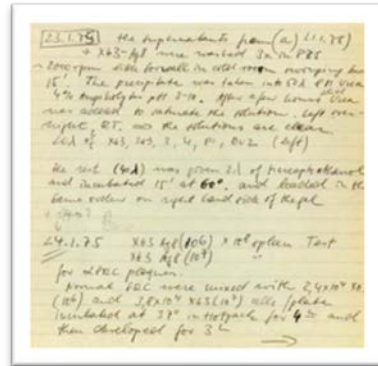 23.1.75 the supernatants from (a) 21.1.75)
+ X63-Ag8 were washed 3x in PBS
2000 rpm in cold room
15'. The precipitate was taken into 50λ 8M Urea
4% Ampholytes pH 3-10. After a few hours Urea
was added to saturate the solution. Left over-
night, RT. The solutions are clear.
20λ of X63, 3, 4, (left)
The rest (40λ) was given 2λ of mercaptoethanol
and incubated 15' at 60°. and loaded in the
same order on right hand side of the gel
24.1.75 X63 Ag8 (10⁶) x 10⁸ spleen Test
X63 Ag8 (10⁷) "
for SRBC plaques.
Normal SRBC were mixed with 2,4x10⁴
(10⁶) and 3,8x10⁴ X63 (10⁷) cells/plate
incubated at 37° in hotpack for 4h and
then developed for 3h